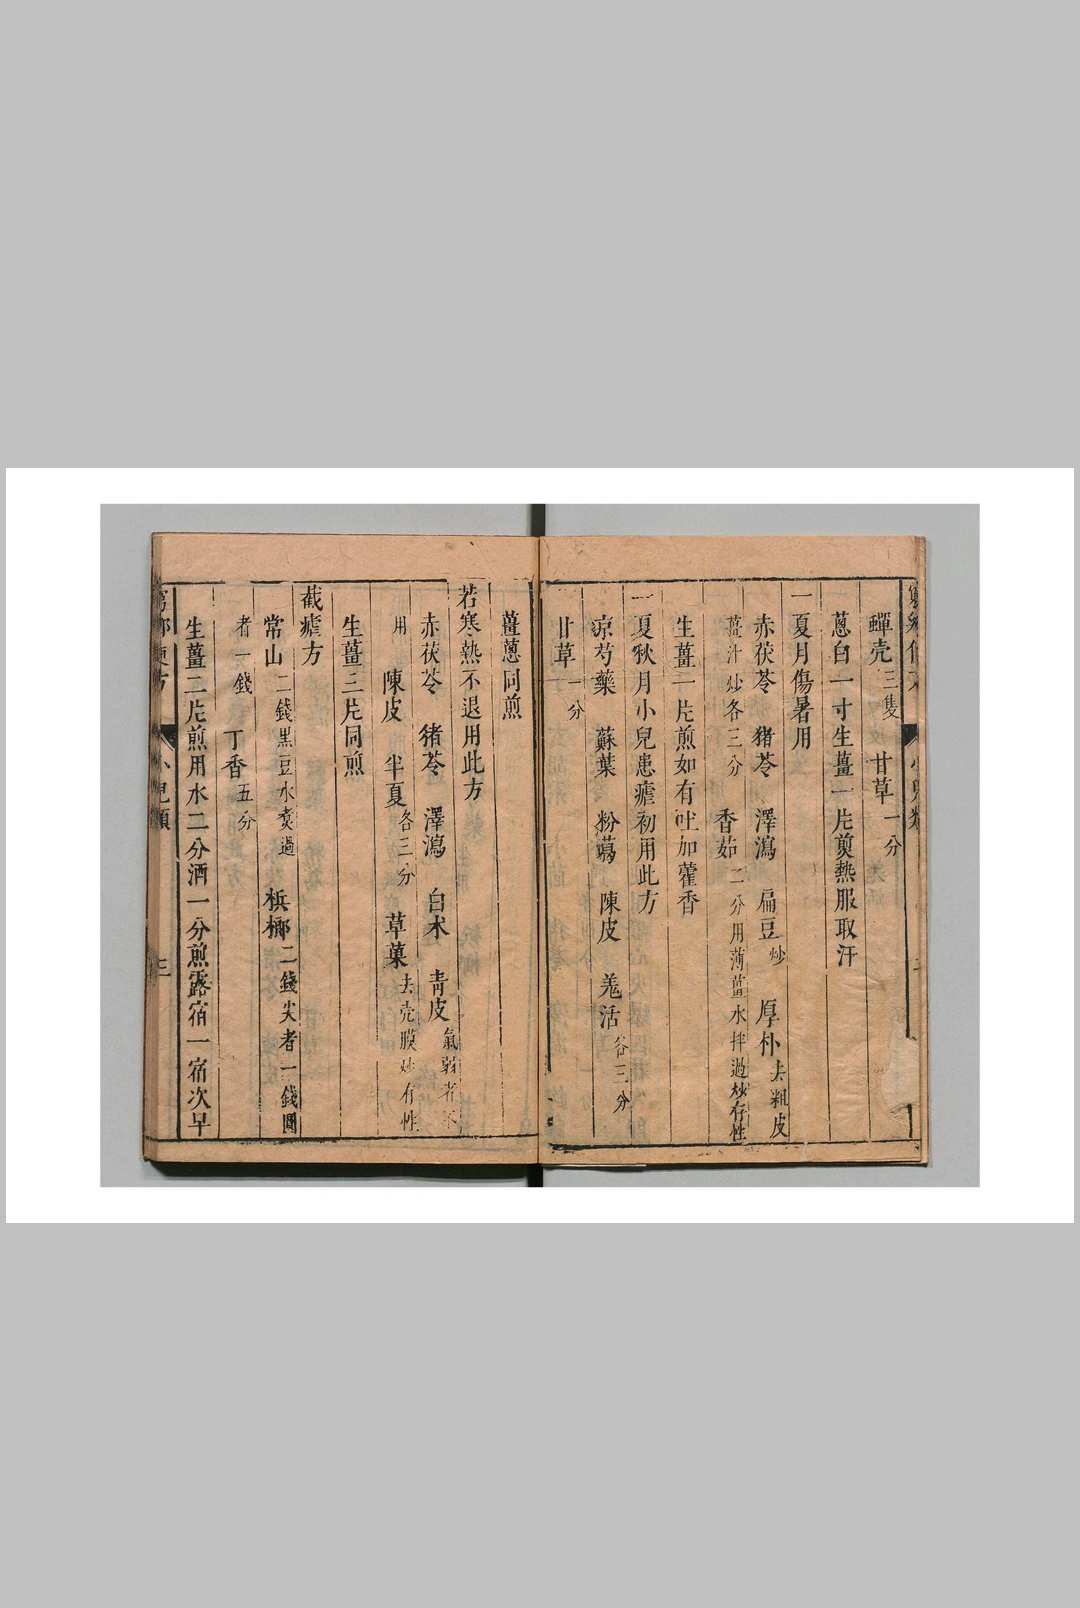 蟬壳三隻 甘草一分
蔥白一寸生薑一片煎熱服取汗
一夏月傷暑用
赤茯苓 猪苓 澤瀉 扁豆炒 厚朴去粗皮
薑汁炒各三分 香茹二分用薄薑水拌過炒存性
生薑一片煎如有吐加藿香
一夏秋月小兒患瘧初用此方
涼芍藥 蘇葉 粉葛 陳皮 羗活各三分
甘草一分
薑蔥同煎
若寒熱不退用此方
赤茯苓 猪苓 澤瀉 白术 青皮氣弱者不
用 陳皮 半夏各三分 草菓去壳膜炒存性
生薑三片同煎
截瘧方
常山二錢黑豆水煑過 梹榔二錢尖者一錢圓
者一錢 丁香五分
生薑二片煎用水二分酒一分煎露宿一宿次早
小兒類
三